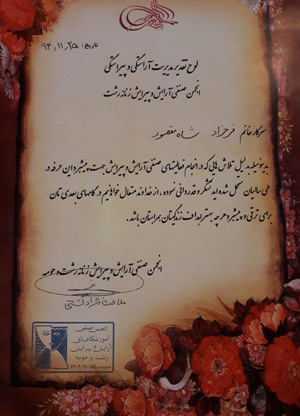 تاریخ: ۹۴،۱۱،۲۵
لوح تقدیر مدیریت آراستگی و پیراستگی
انجمن صنفی آرایش و پیرایش زنانه رشت
سرکار خانم فرحزاد شاه مقصود
بدینوسیله به دلیل تلاش هایی که در انجام فعالیتهای صنفی آرایش و پیرایش جهت پیشبرد این حرفه در
طی سالیان متحمل شده اید تشکر و قدردانی نموده، از خداوند متعال خواهانیم در گامهای بعدی تان
برای ترقی و پیشبرد هر چه بهتر اهداف زندگیتان همراهتان باشد.
انجمن صنفی آرایش و پیرایش زنانه رشت و حومه
ملاحت
انجمن صنفی
آموزشگاههای
آرایش و پیرایش
رشت و حومه